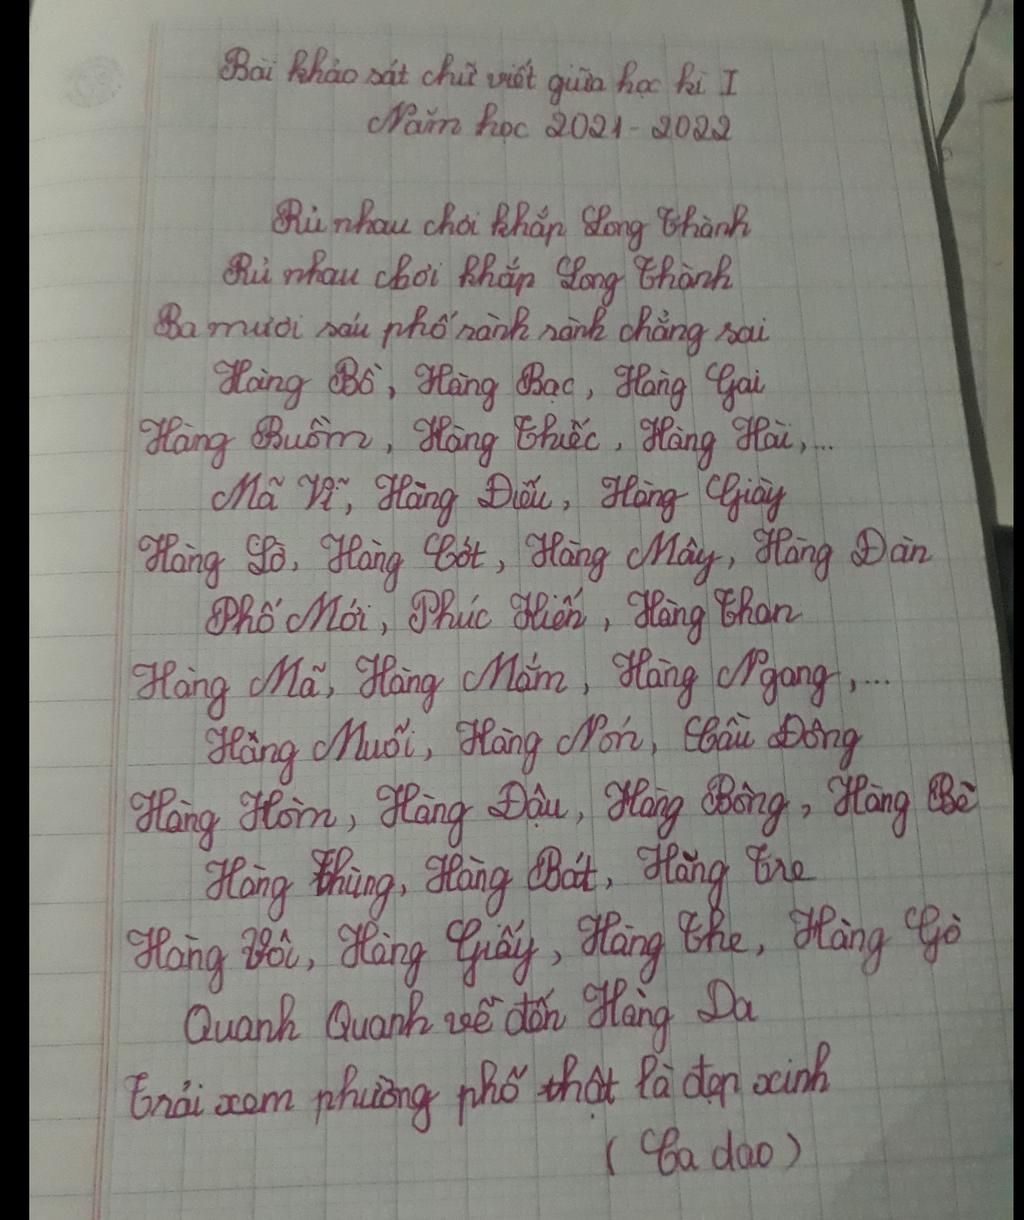 Bài khảo sát chữ viết giữa học kì I
Năm học 2021 - 2022
Rủ nhau chơi khắp Long Thành
Rủ nhau chơi khắp Long Thành
Ba mươi sáu phố rành rành chẳng sai
Hàng Bồ, Hàng Bạc, Hàng Gai
Hàng Buồm, Hàng Thiếc, Hàng Hài,...
Mã Vĩ, Hàng Điếu, Hàng Giày
Hàng Lờ, Hàng Cót, Hàng Mây, Hàng Đàn
Phố Mới, Phúc Kiến, Hàng Than
Hàng Mã, Hàng Mắm, Hàng Ngang,...
Hàng Muối, Hàng Nón, Cầu Đông
Hàng Hòm, Hàng Đậu, Hàng Bông, Hàng Bè
Hàng Thùng, Hàng Bát, Hàng Tre
Hàng Vôi, Hàng Giấy, Hàng The, Hàng Gò
Quanh Quanh về đến Hàng Da
Trải xem phường phố thật là đẹp xinh
(Ca dao)